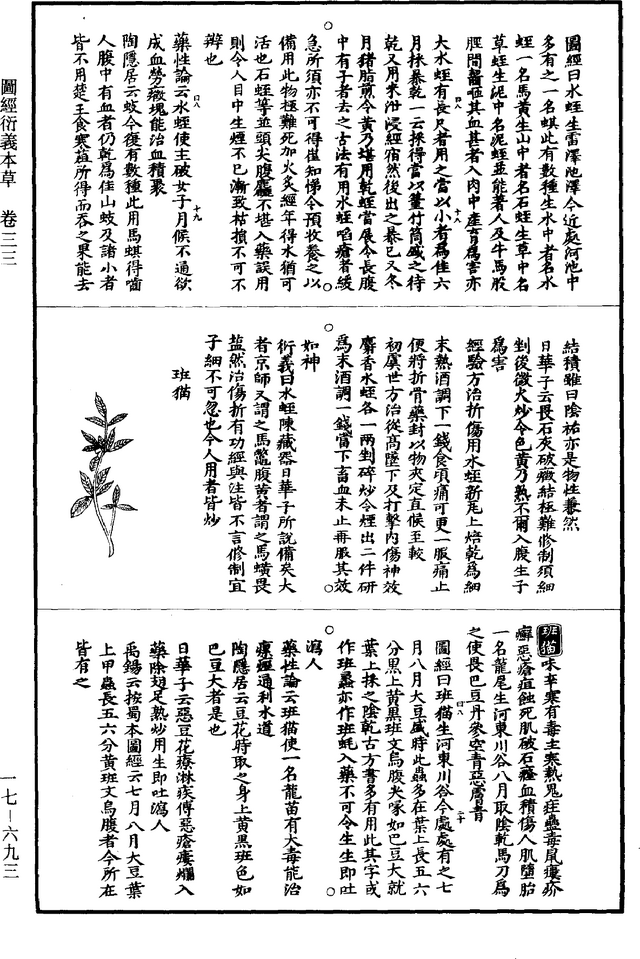 圖經衍義本草 卷三三
一七—六九三
圖經曰水蛭生雷澤池澤今近處河池中
多有之一名蜞此有數種生水中者名水
蛭一名馬黃生山中者名石蛭生草中名
草蛭生泥中名泥蛭並能著人及牛馬股
脛間齧咂其血甚者入肉中產育爲害亦
大水蛭有長尺者用之當以小者爲佳六
月採暴乾一云採得當以䈽竹筒盛之待
乾又用米泔浸經宿然後出之暴已又冬
月猪脂煎令黃乃堪用乾蛭當展令長腹
中有子者去之古法有用水蛭啗瘡者緩
急所須亦不可得崔知悌令預收養之以
備用此物極難死加火炙經年得水猶可
活也石蛭等並頭尖腹麤不堪入藥誤用
則令人目中生煙不已漸致枯損不可不
辨也
藥性論云水蛭使主破女子月候不通欲
成血勞癥塊能治血積聚
陶隱居云蚑今復有數種此用馬蜞得嚙
人腹中有血者仍乾爲佳山蚑及諸小者
皆不用楚王食寒葅所得而吞之果能去
結積雖曰陰祐亦是物性兼然
日華子云畏石灰破癥結極難修制須細
剉後微火炒令色黃乃熟不爾入腹生子
爲害
經驗方治折傷用水蛭新瓦上焙乾爲細
末熱酒調下一錢食頃痛可更一服痛止
便將折骨藥封以物夾定直候至較
初虞世方治從高墜下及打擊內傷神效
麝香水蛭各一兩剉碎炒令煙出二件研
爲末酒調一錢當下畜血未止再服其效
如神
衍義曰水蛭陳藏器日華子所說備矣大
者京師又謂之馬鱉腹黃者謂之馬蟥畏
盐然治傷折有功經與注皆不言修制宜
子細不可忽也今人用者皆炒
班猫
班猫味辛寒有毒主寒熱鬼疰蠱毒鼠瘻疥
癬惡瘡疽蝕死肌破石癃血積傷人肌墮胎
一名龍尾生河東川谷八月取陰乾馬刀爲
之使畏巴豆丹參空青惡膚青
圖經曰班猫生河東川谷今處處有之七
月八月大豆盛時此蟲多在葉上長五六
分黑上黃黑班文烏腹尖喙如巴豆大就
葉上採之陰乾古方書多有用此其字或
作班蟊亦作班蚝入藥不可令生生即吐
瀉人
藥性論云班猫使一名龍苗有大毒能治
瘰癧通利水道
陶隱居云豆花時取之身上黃黑班色如
巴豆大者是也
日華子云惡豆花療淋疾傅惡瘡瘻爛入
藥除翅足熟炒用生即吐瀉人
禹錫云按蜀本圖經云七月八月大豆葉
上甲蟲長五六分黃班文烏腹者今所在
皆有之